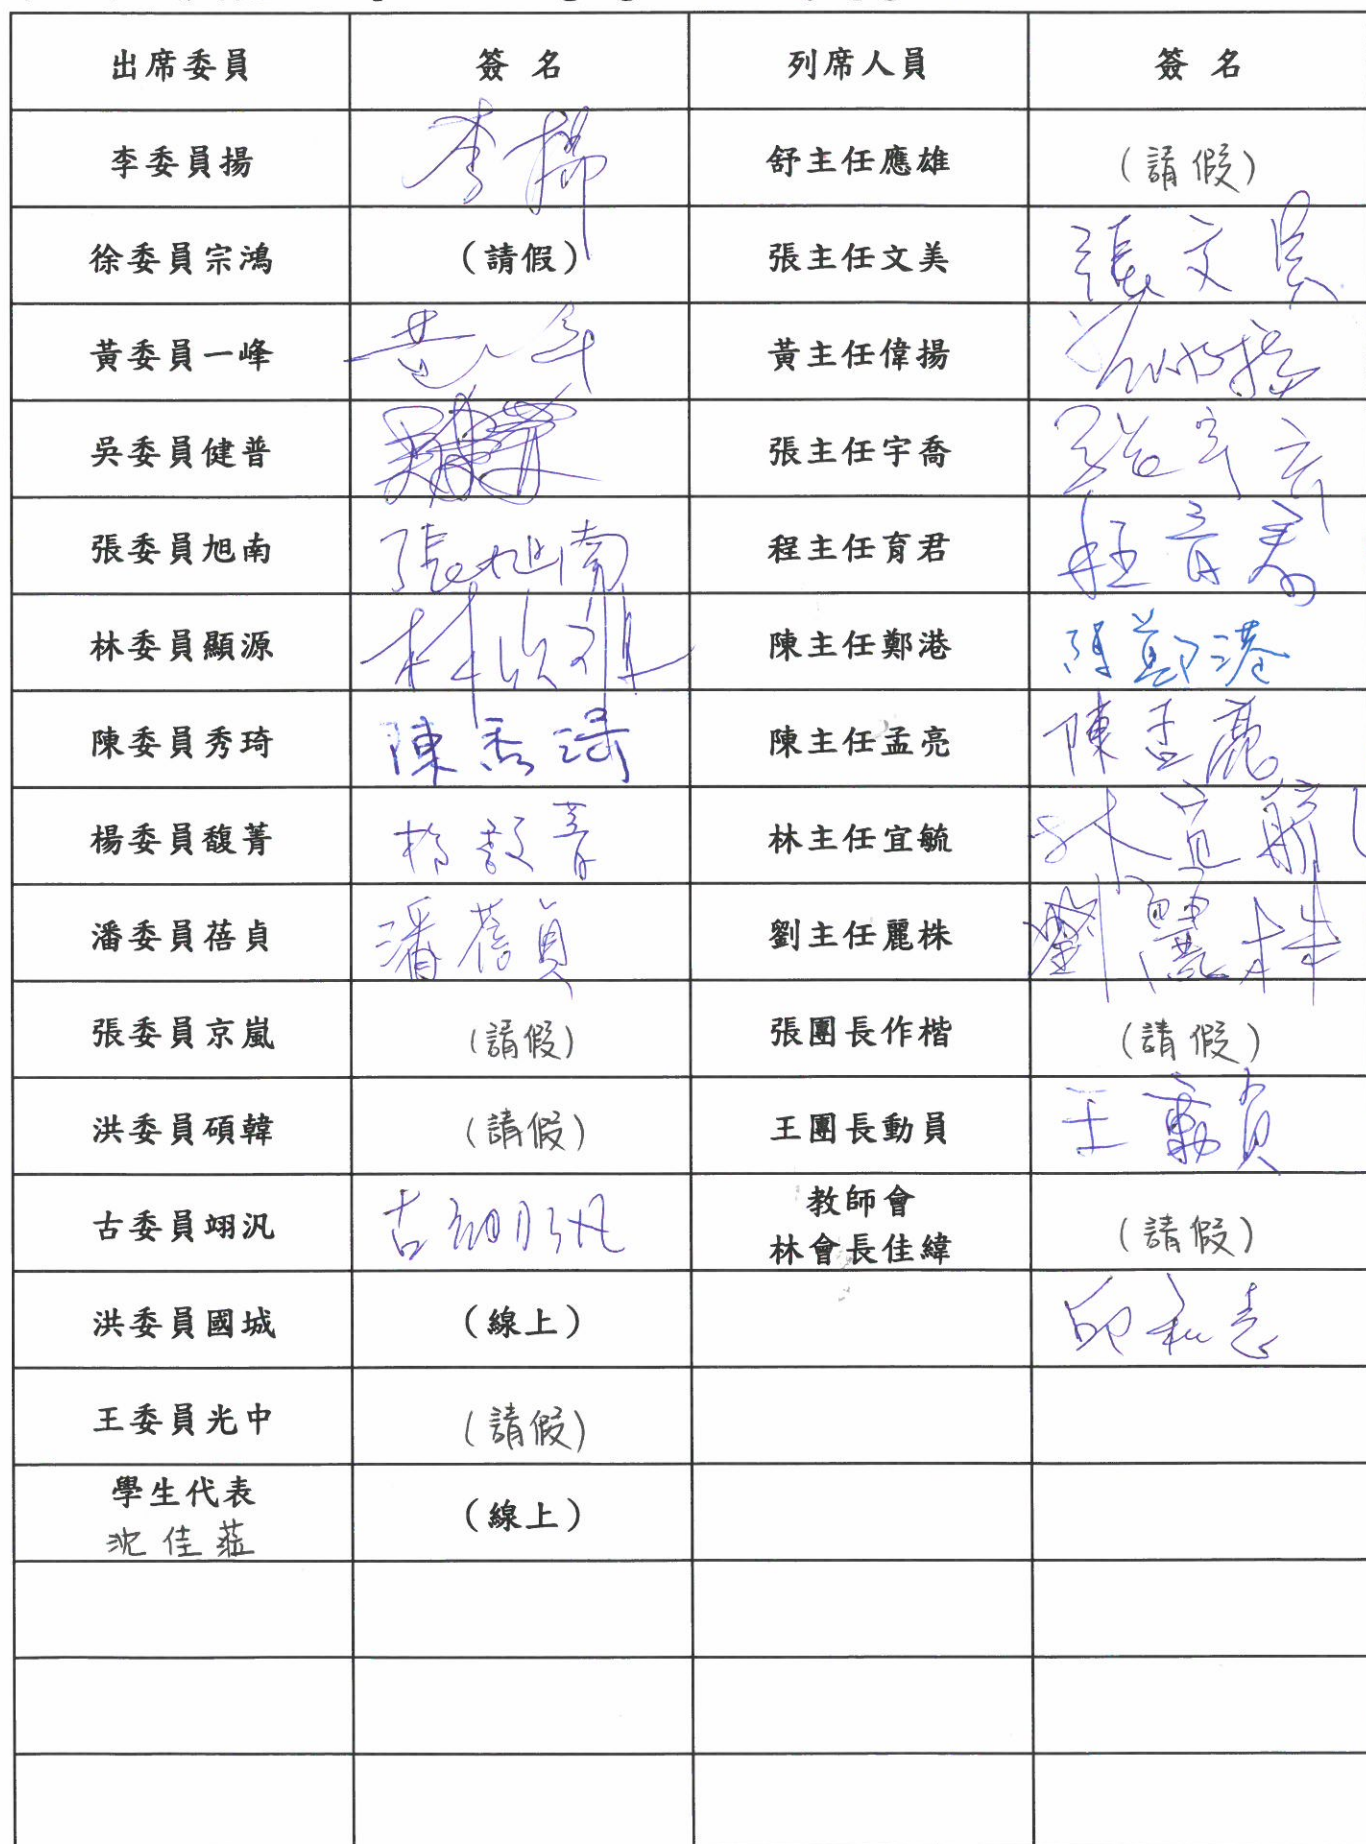 出席委員 簽名 列席人員 簽名
李委員揚 李揚 舒主任應雄 (請假)
徐委員宗鴻 (請假) 張主任文美 張文美
黃委員一峰 黃一峰 黃主任偉揚
吳委員健普 張主任宇喬
張委員旭南 張旭南 程主任育君 程育君
林委員顯源 林 陳主任鄭港 陳鄭港
陳委員秀琦 陳秀琦 陳主任孟亮 陳孟亮
楊委員馥菁 楊馥菁 林主任宜毓 林宜毓
潘委員蓓貞 潘蓓貞 劉主任麗株 劉麗株
張委員京嵐 (請假) 張團長作楷 (請假)
洪委員碩韓 (請假) 王團長動員 王動員
古委員翊汎 古翊汎 教師會
林會長佳緯 (請假)
洪委員國城 (線上)
王委員光中 (請假)
學生代表 (線上)
沈佳蒞